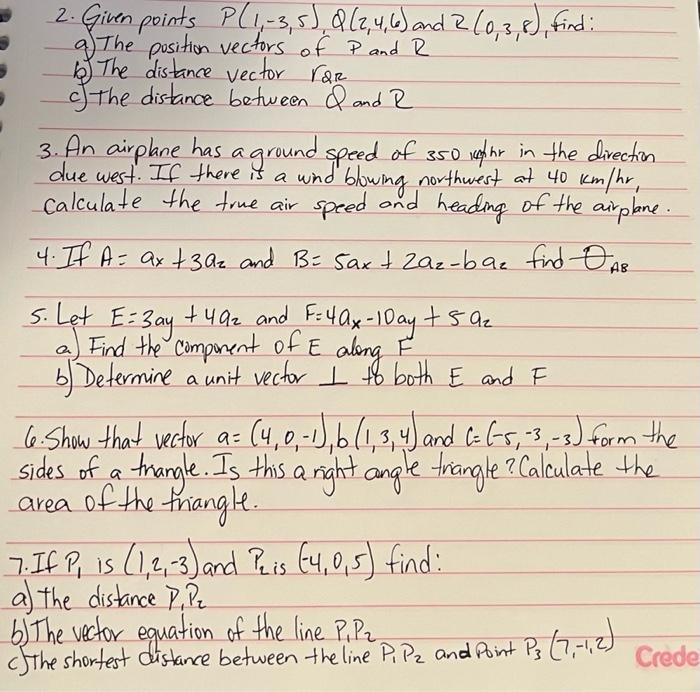 2. Given points P(1,-3,5), Q(2,4,6) and R(0,3,8), find:
a) The position vectors of P and R
b) The distance vector rQR
c) The distance between Q and R
3. An airplane has a ground speed of 350 km/hr in the direction
due west. If there is a wind blowing northwest at 40 km/hr,
calculate the true air speed and heading of the airplane.
4. If A = ax + 3az and B = 5ax + 2az - 6az find θAB
5. Let E = 3ay + 4az and F = 4ax - 10ay + 5az
a) Find the component of E along F
b) Determine a unit vector ⊥ to both E and F
6. Show that vector a = (4, 0, -1), b (1, 3, 4) and C = (-5, -3, -3) form the
sides of a triangle. Is this a right angle triangle? Calculate the
area of the triangle.
7. If P1 is (1, 2, -3) and P2 is (-4, 0, 5) find:
a) The distance P1P2
b) The vector equation of the line P1P2
c) The shortest distance between the line P1P2 and Point P3 (7, -1, 2)
Crede